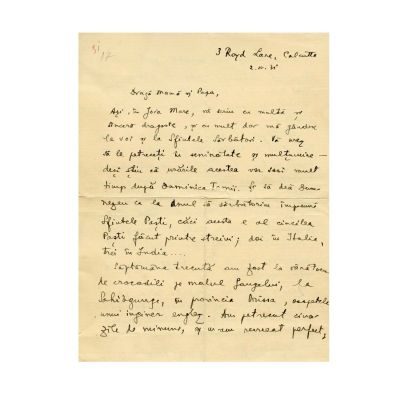 31
17
3 Royd Lane, Calcutta
2. IV. 31
Dragă Mamă și Papa,
Azi, în Joia Mare, vă scriu cu multă și
sinceră dragoste, și cu mult dor mă gândesc
la voi și la Sfintele Sărbători. Vă rog
să le petreceți în seninătate și mulțumire –
deși știu că urările acestea vor sosi mult
timp după Duminica T-mii. Și să dea Dum-
nezeu ca la anul să sărbătorim împreună
Sfintele Paști, căci acesta e al cincilea
Paști făcut printre streini; doi în Italia,
trei în India....
Săptămâna trecută am fost la vânătoare
de crocodili pe malul Gangelui, la
în provincia Orissa, oaspetele
unui inginer englez. Am petrecut
zile de minune, și m-am recreat perfect,